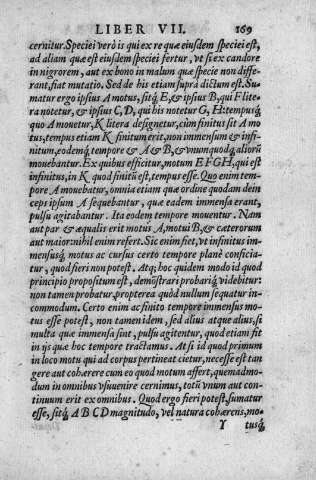 LIBER VII. 169
cernitur. Speciei verò is qui ex re quæ eiusdem speciei est,
ad aliam quæ est eiusdem speciei fertur, vt si ex candore
in nigrorem, aut ex bono in malum quæ specie non diffe-
rant, fiat mutatio. Sed de his etiam suprà dictum est. Su-
matur ergo ipsius A motus, sitq́; E, & ipsius B, qui F lite-
ra notetur, & ipsius C, D, qui his notetur G, H: tempusq́;
quo A mouetur, K litera designetur, cùm finitus sit A mo
tus, tempus etiam K finitum erit, non immensum & infi-
nitum, eodemq́; tempore & A & B, & vnumquodq; aliorũ
mouebantur. Ex quibus efficitur, motum EFGH, qui est
infinitus, in K quod finitũ est, tempus esse. Quo enim tem-
pore A mouebatur, omnia etiam quæ ordine quodam dein
ceps ipsum A sequebantur, quæ eadem immensa erant,
pulsu agitabantur. Ita eodem tempore mouentur. Nam
aut par & æqualis erit motus A, motui B, & cæterorum
aut maior: nihil enim refert. Sic enim fiet, vt infinitus im
mensusq́; motus ac cursus certo tempore planè conficia-
tur, quod fieri non potest. Atq; hoc quidem modo id quod
principio propositum est, demõstrari probariq́; videbitur:
non tamen probatur, propterea quòd nullum sequatur in-
commodum. Certo enim ac finito tempore immensus mo-
tus esse potest, non tamen idem, sed alius atque alius, si
multa quæ immensa sint, pulsu agitentur, quod etiam fit
in ijs quæ hoc tempore tractamus. At si id quod primum
in loco motu qui ad corpus pertineat cietur, necesse est tan
gere aut cohærere cum eo quod motum affert, quemadmo-
dum in omnibus vsuuenire cernimus, totũ vnum aut con
tinuum erit ex omnibus. Quod ergo fieri potest, sumatur
esse, sitq́; ABCD magnitudo, vel natura cohærens, mo-
Y tusq́;